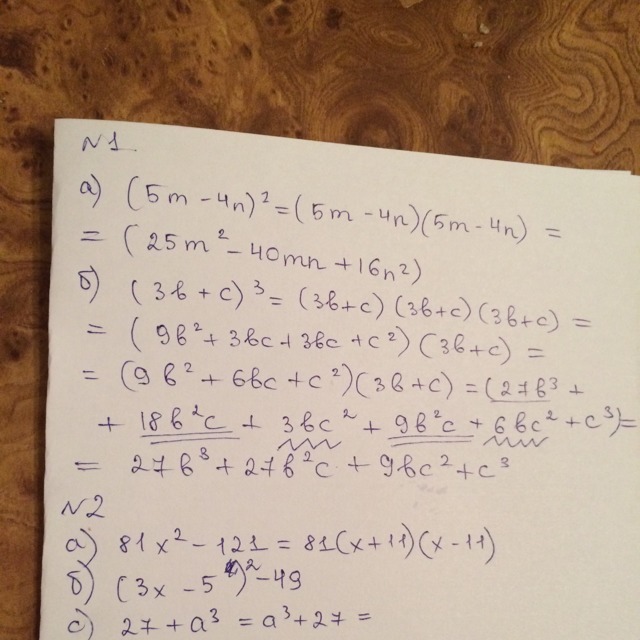 N1
а) (5m - 4n)² = (5m - 4n)(5m - 4n) =
= (25m² - 40mn + 16n²)
б) (3b + c)³ = (3b + c)(3b + c)(3b + c) =
= (9b² + 3bc + 3bc + c²)(3b + c) =
= (9b² + 6bc + c²)(3b + c) = (27b³ +
+ 18b²c + 3bc² + 9b²c + 6bc² + c³) =
= 27b³ + 27b²c + 9bc² + c³
N2
а) 81x² - 121 = 81(x + 11)(x - 11)
б) (3x - 5)² - 49
с) 27 + a³ = a³ + 27 =